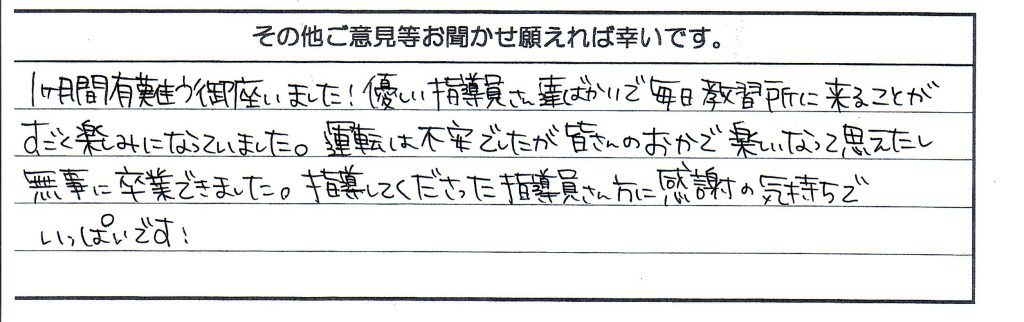 その他ご意見等お聞かせ願えれば幸いです。
1ヶ月間有難う御座いました！優しい指導員さん達ばかりで毎日教習所に来ることが
すごく楽しみになっていました。運転は不安でしたが皆さんのおかで楽しいなって思えたし
無事に卒業できました。指導してくださった指導員さん方に感謝の気持ちで
いっぱいです！